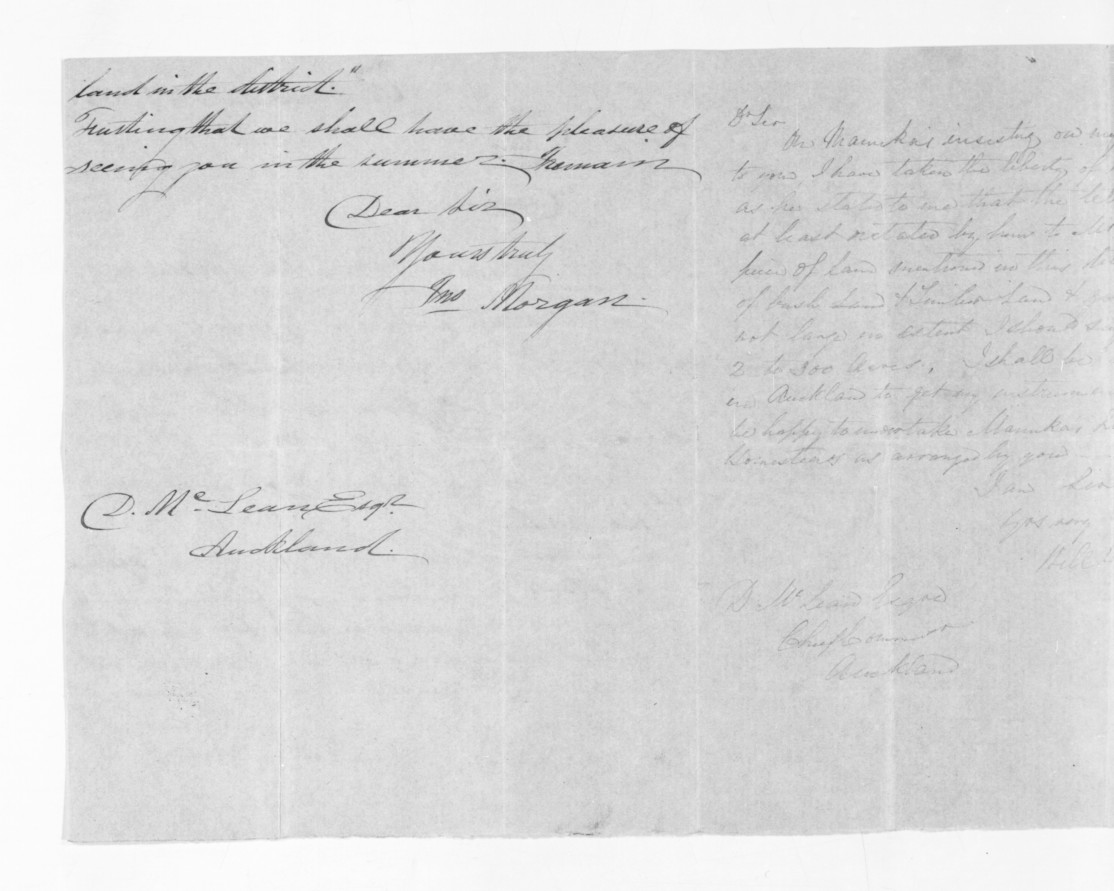 land in the district."
Trusting that we shall have the pleasure of
seeing you in the summer. I remain
Dear Sir
Yours truly
Jno Morgan.
D. McLean Esqr.
Auckland.
Dr Sir
On Manuka's insisting on my
to you, I have taken the liberty of
as he stated to me that the
at least dictated by him to
piece of land mentioned in this
of bush land & timber land &
not large in extent I should say
2 to 300 Acres, I shall be
in Auckland to get my instruments
be happy to undertake Manukas
as arranged by you
I am Sir
Yrs very
D McLean Esqre
Chief Commr
Auckland